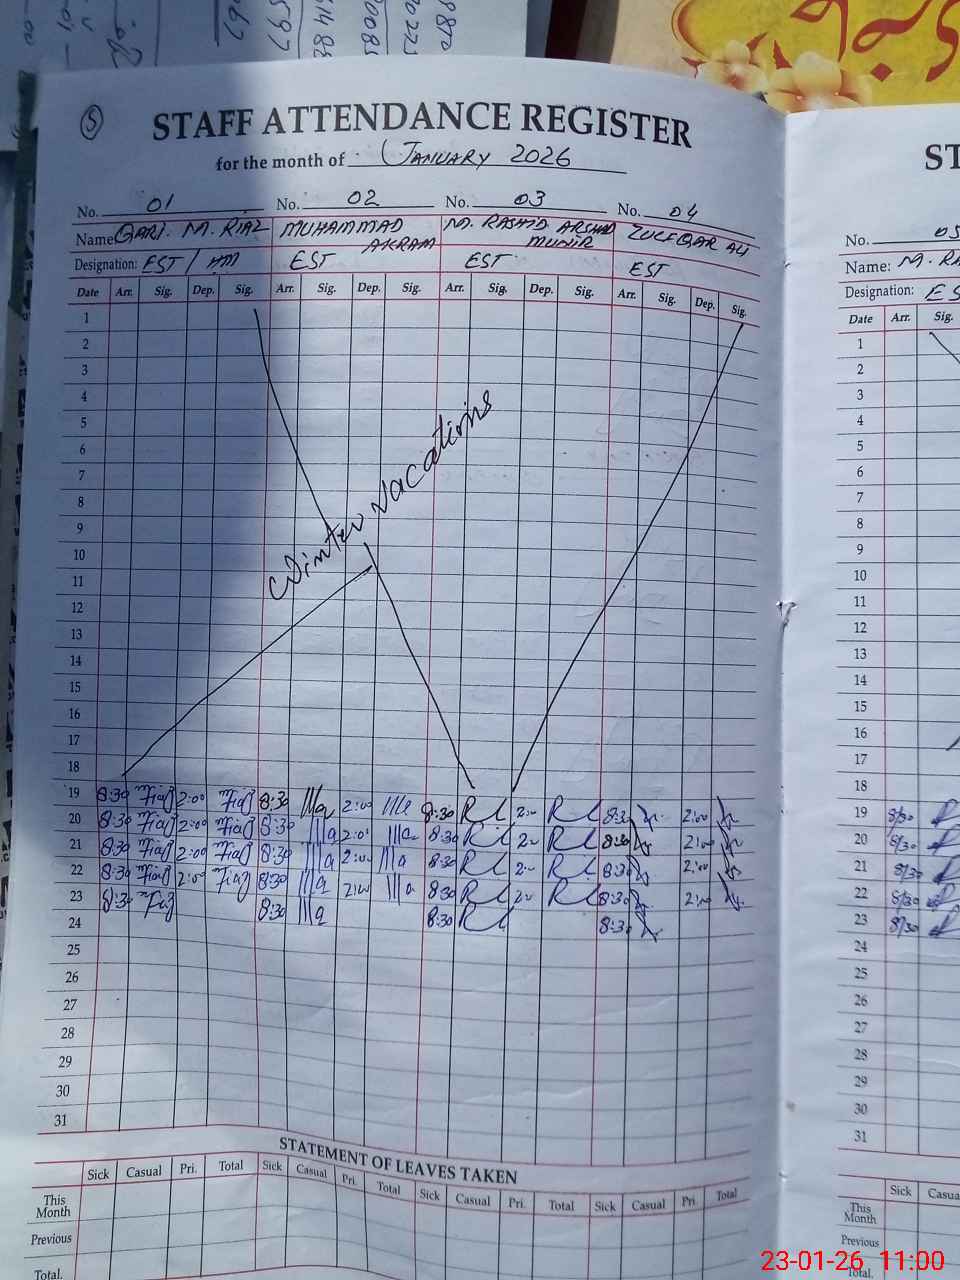 S
STAFF ATTENDANCE REGISTER
for the month of JANUARY 2026
No. 01 No. 02 No. 03 No. 04
Name QARI. M. RIAZ MUHAMMAD AKRAM M. RASHID ARSHAD MUNIR ZULFQAR ALI
Designation: EST / HM EST EST EST
Date Arr. Sig. Dep. Sig. Arr. Sig. Dep. Sig. Arr. Sig. Dep. Sig. Arr. Sig. Dep. Sig.
1
2
3
4
5
6
7
8
9
10
11
12
13
14
15
16
17
18
Winter Vacations
19 8:30 2:00 8:30 2:00 8:30 2:00
20 8:30 2:00 8:30 2:00 8:30 8:30 2:00
21 8:30 2:00 8:30 2:00 8:30 8:30 2:00
22 8:30 2:00 8:30 2:00 8:30 8:30 2:00
23 8:30 8:30 8:30 8:30
24
25
26
27
28
29
30
31
STATEMENT OF LEAVES TAKEN
Sick Casual Pri. Total Sick Casual Pri. Total Sick Casual Pri. Total Sick Casual Pri. Total
This Month
Previous
Total.
ST
No. 05
Name: M. RA
Designation: ES
Date Arr. Sig.
1
2
3
4
5
6
7
8
9
10
11
12
13
14
15
16
17
18
19 8/30
20 8/30
21 8/30
22 8/30
23 8/30
24
25
26
27
28
29
30
31
Sick Casua
This Month
Previous
Total.
23-01-26 11:00